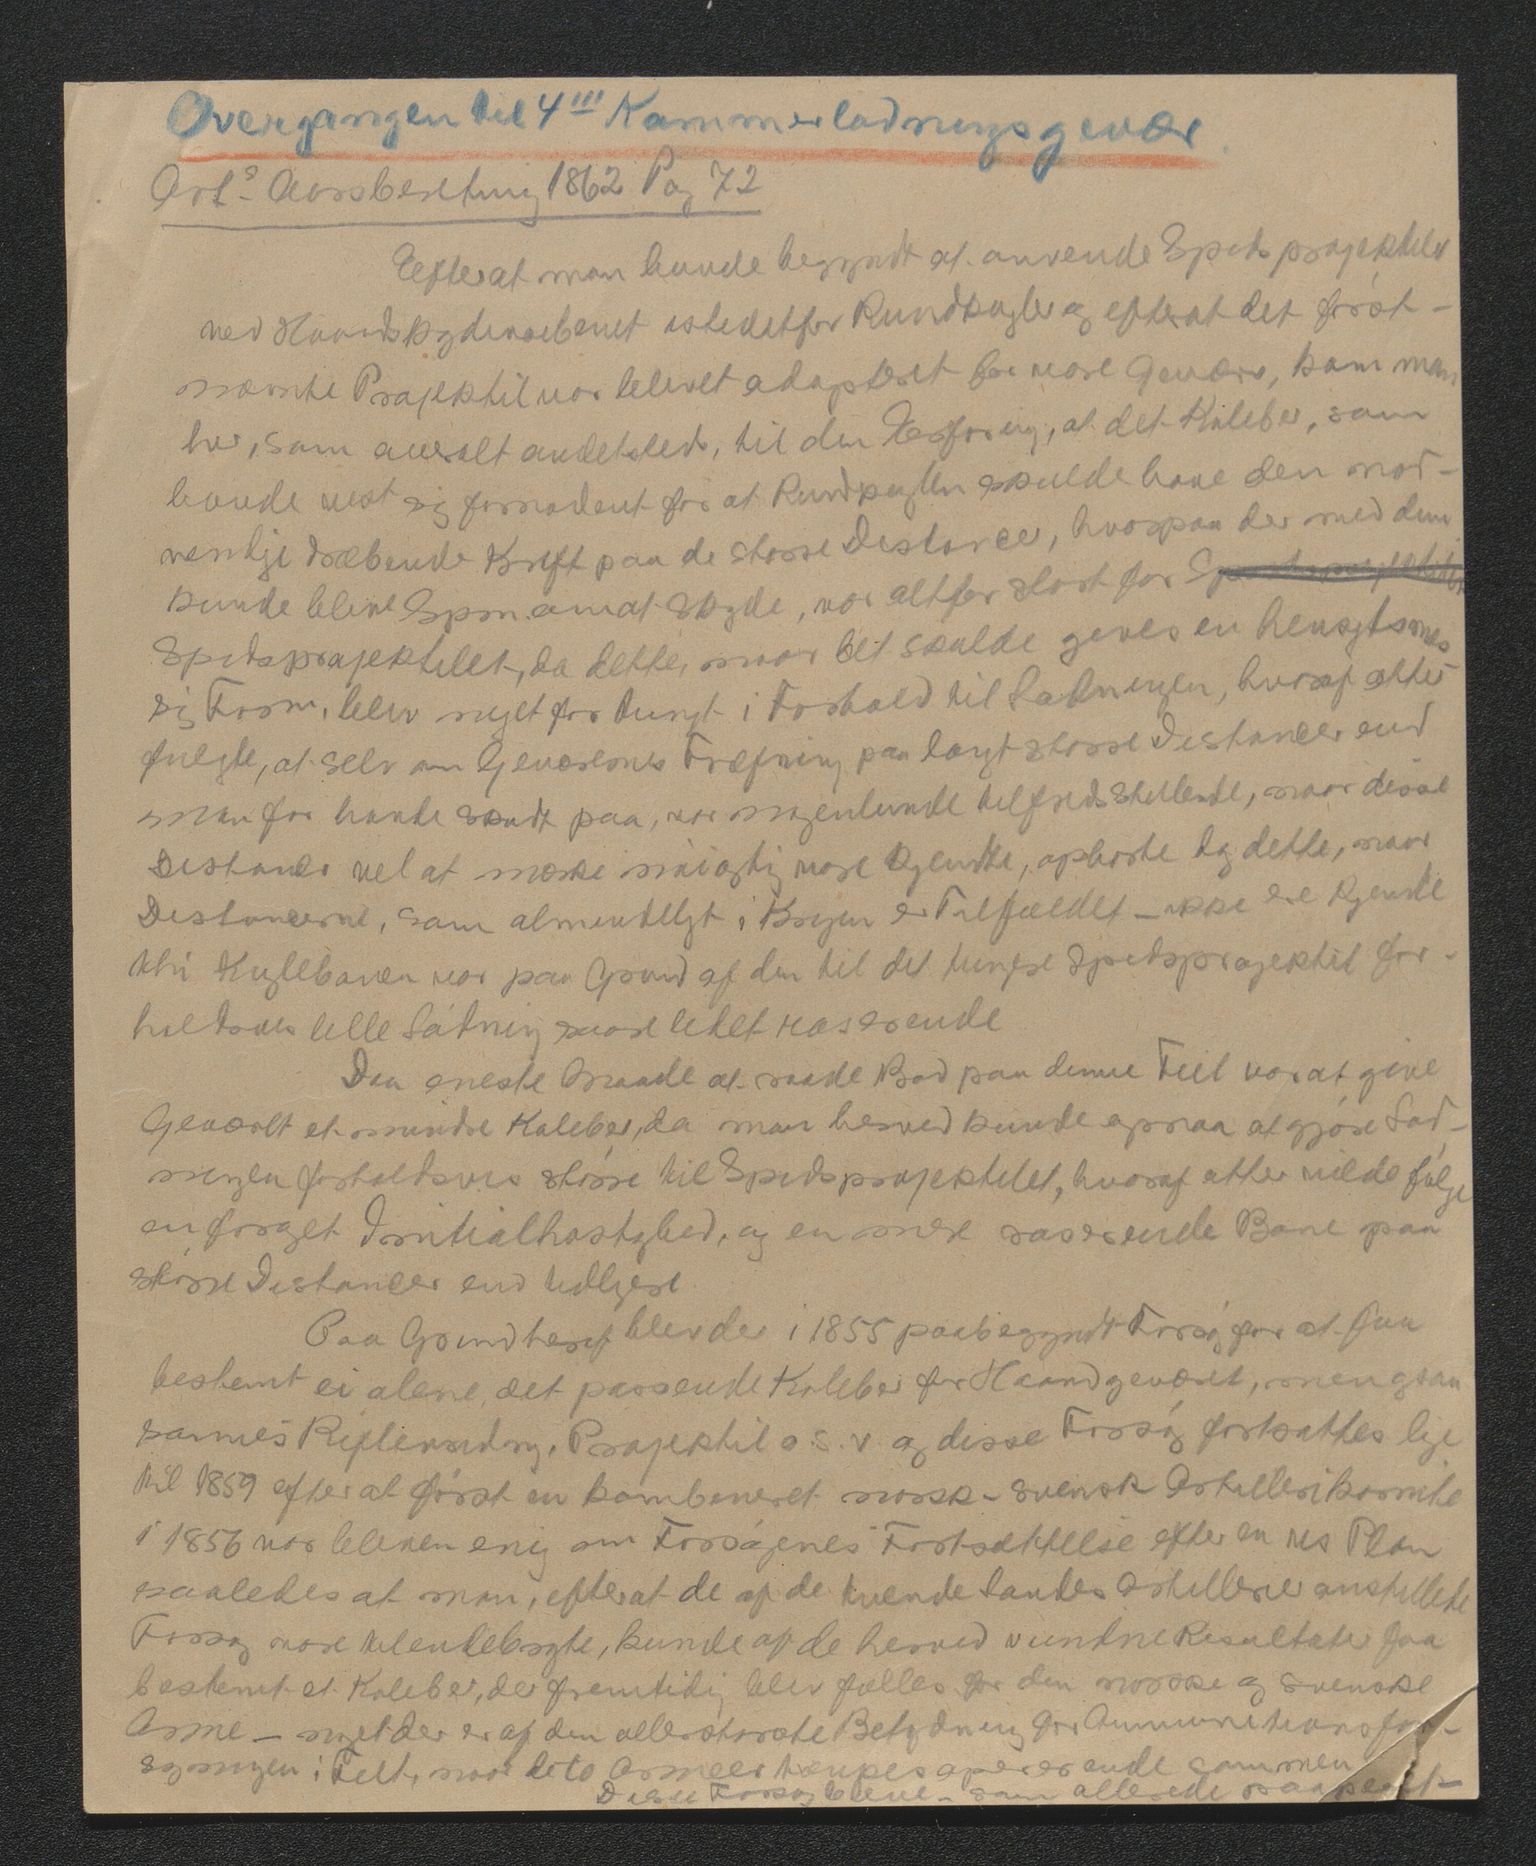 Overgangen til 4''' Kammerladningsgevær.
Art.s Aarsberetning 1862 Pag 72
Efterat man havde begyndt at anvende Spidsprojektiler
ved Haandskydevaabenet istedetfor Rundkugler og efterat det først-
nævnte Projektil var blevet adopteret for vore Geværer, kom man
her, som overalt andetsteds, til den Erfaring, at det Kaliber, som
havde vist sig fornødent for at Rundkuglen skulde have den nød-
vendige dræbende Kraft paa de større Distancer, hvorpaa der med dem
kunde blive Spm. om at skyde, var altfor stort for
Spidsprojektilet, da dette, naar det skulde gives en hensigtsmæs
sig Form, blev meget for tungt i Forhold til Ladningen, hvoraf atter
fulgte, at selv om Geværernes Træfning paa langt større Distancer end
man før havde skudt paa, var nogenlunde tilfredsstillende, naar disse
Distancer vel at mærke nöiagtig vare kjendte, ophørte dog dette, naar
Distancerne, som almindeligt i Krigen er Tilfældet – ikke ere kjendte
thi Kuglebanen var paa Grund af den til det tunge Spidsprojektil for-
holdsvis lille Ladning svare lidet raserende
Den eneste Maade at raade Bod paa denne Feil var at give
Geværet et mindre Kaliber, da man herved kunde opnaa at gjøre Lad-
ningen forholdsvis større til Spidsprojektilet, hvoraf atter vilde følge
en forøget Initialhastighed, og en mere raserende Bane paa
større Distancer end tidligere
Paa Grund heraf blev der i 1855 paabegyndt Forsøg for at faa
bestemt ei alene det passende Kaliber for Haandgeværet, men ogsaa
sammes Riflevinding, Projektil o. s. v. og disse Forsøg fortsattes lige
til 1859 efterat först en kombineret norsk-svensk Artillerikomite
i 1856 var bleven enig om Forsøgenes Fortsættelse efter en vis Plan
saaledes at man, efterat de af de tvende Landes Artillerier anstillede
Forsøg vare tilendebragte, kunde af de herved vundne Resultater faa
bestemt et Kaliber, der fremtidig blev fælles for den norske og svenske
Arme – noget der er af den allerstørste Betydning for Ammunitionsfor-
syningen i Felt, naar de to Armeer tænkes opererende sammen
Disse Forsøg bleve – som allerede